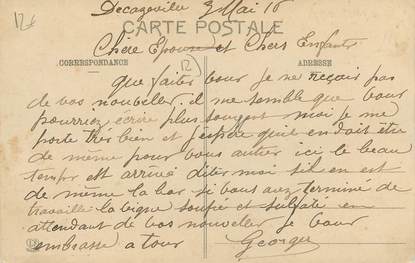 12f
Decazeville 3 Mai 16
CARTE POSTALE
Chère Epouse et Chers Enfants
CORRESPONDANCE
12
ADRESSE
que faiter vour Je ne reçoir pas
de vos nouveller il me semble que vour
pourriez écrire plus souvent moi Je me
porte très bien et J'espère qu'il en doit être
de même pour vous autrer ici le beau
tempr est arrivé diter moi s'il en est
de même la bar si vous avez terminé de
travailler la vigne soufré et sulfaté en
attendant de vos nouveller Je vour
embrasse a tour
Georges